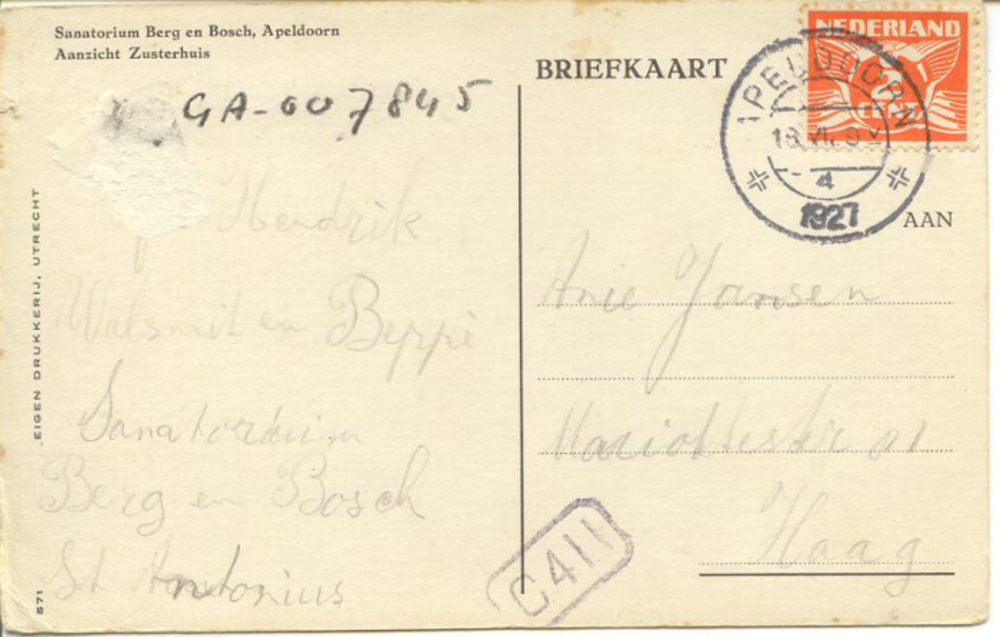 Sanatorium Berg en Bosch, Apeldoorn
Aanzicht Zusterhuis
GA-007845
Hendrik
Walsmit en Beppi
Sanatorium
Berg en Bosch
St Antonius
EIGEN DRUKKERIJ, UTRECHT
571
BRIEFKAART
NEDERLAND
2
CENT
APELDOORN
4
1927
AAN
Anie Jansen
Haag
C411